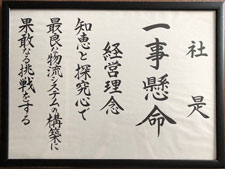 社是
一事懸命
経営理念
知恵と探究心で
最良な物流システムの構築に
果敢なる挑戦をする